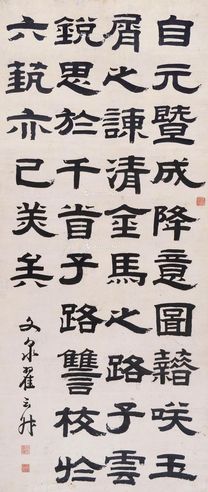 自元暨成降意圖藉咲玉
屑之諫清金馬之路子雲
銳思於千首子路讐校於
六蓺亦已美矣
文泉翟云升